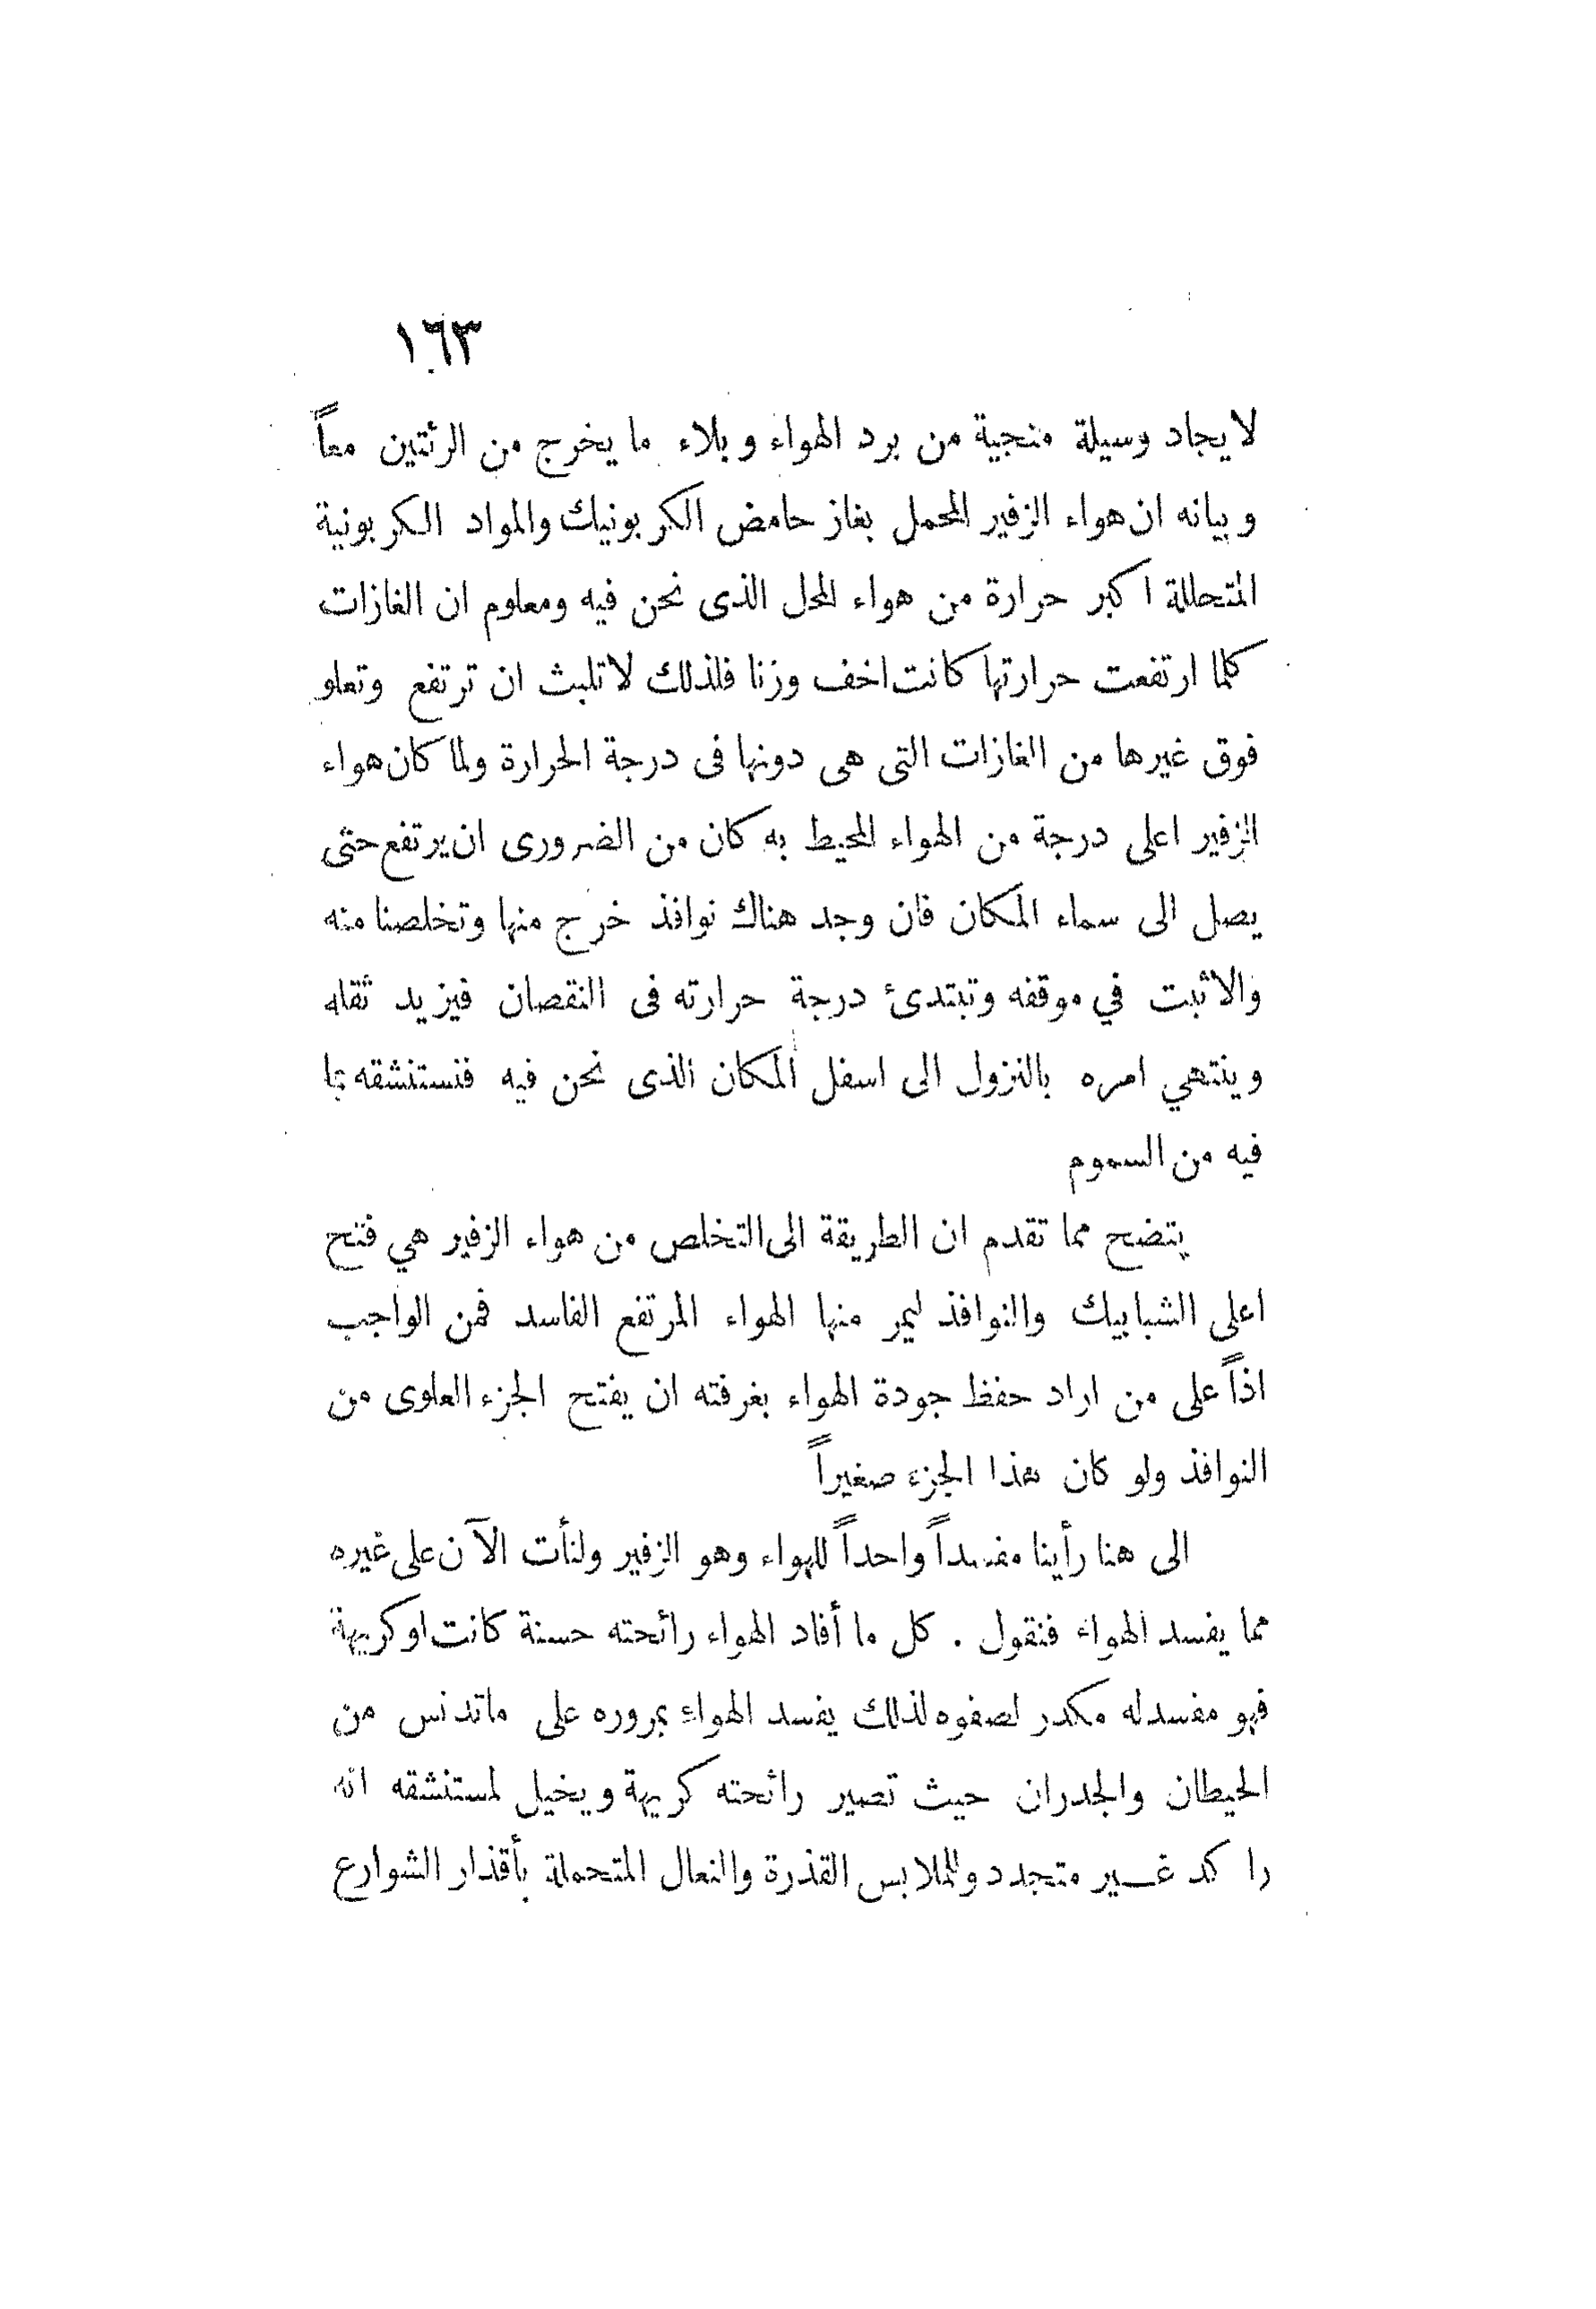 ١٦٣
لايجاد وسيلة منجية من برد الهواء وبلاء ما يخرج من الرئتين معاً
وبيانه ان هواء الزفير المحمل بغاز حامض الكربونيك والمواد الكربونية
المتحللة اكبر حرارة من هواء المحل الذى نحن فيه ومعلوم ان الغازات
كلما ارتفعت حرارتها كانت اخف وزنا فلذلك لا تلبث ان ترتفع وتعلو
فوق غيرها من الغازات التى هى دونها فى درجة الحرارة ولما كان هواء
الزفير اعلى درجة من الهواء المحيط به كان من الضرورى ان يرتفع حتى
يصل الى سماء المكان فان وجد هناك نوافذ خرج منها وتخلصنا منه
والا ثبت في موقفه وتبتدئ درجة حرارته فى النقصان فيزيد ثقله
وينتهي امره بالنزول الى اسفل المكان الذى نحن فيه فنستنشقه بما
فيه من السموم
يتضح مما تقدم ان الطريقة الى التخلص من هواء الزفير هي فتح
اعلى الشبابيك والنوافذ ليمر منها الهواء المرتفع الفاسد فمن الواجب
اذاً على من اراد حفظ جودة الهواء بغرفته ان يفتح الجزء العلوى من
النوافذ ولو كان هذا الجزء صغيراً
الى هنا رأينا مفسداً واحداً للهواء وهو الزفير ولنأت الآن على غيره
مما يفسد الهواء فنقول . كل ما أفاد الهواء رائحته حسنة كانت او كريهة
فهو مفسد له مكدر لصفوه لذلك يفسد الهواء بمروره على ما تدنس من
الحيطان والجدران حيث تصير رائحته كريهة ويخيل لمستنشقه انه
راكد غير متجدد والملابس القذرة والنعال المتحملة بأقذار الشوارع